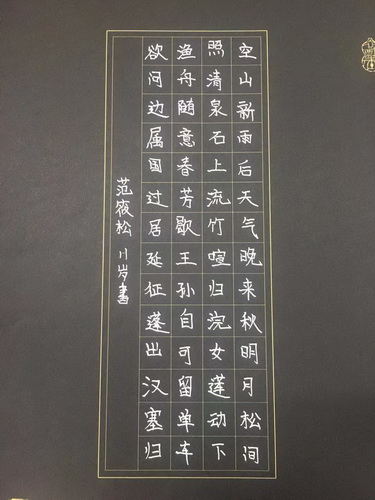 空山新雨后天气晚来秋明月松间
照清泉石上流竹喧归浣女莲动下
渔舟随意春芳歇王孙自可留单车
欲问边属国过居延征蓬出汉塞归
范松 11岁书